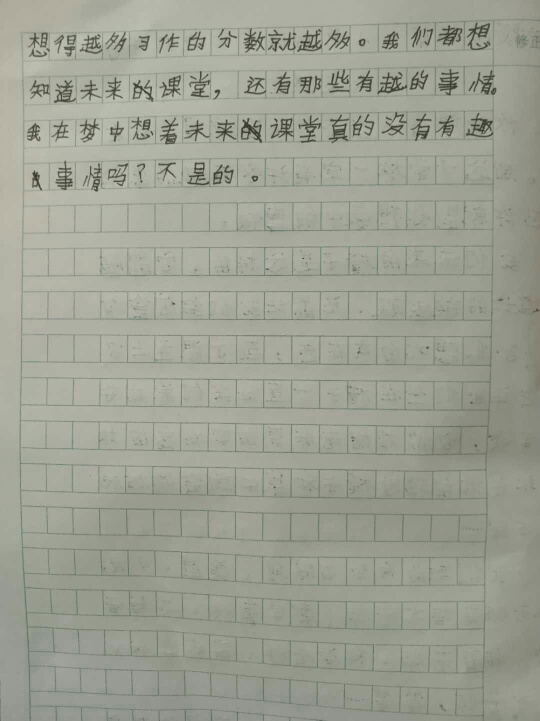 想得越多习作的分数就越多。我们都想
知道未来的课堂，还有那些有越的事情。
我在梦中想着未来的课堂真的没有有趣
的事情吗？不是的。
修正